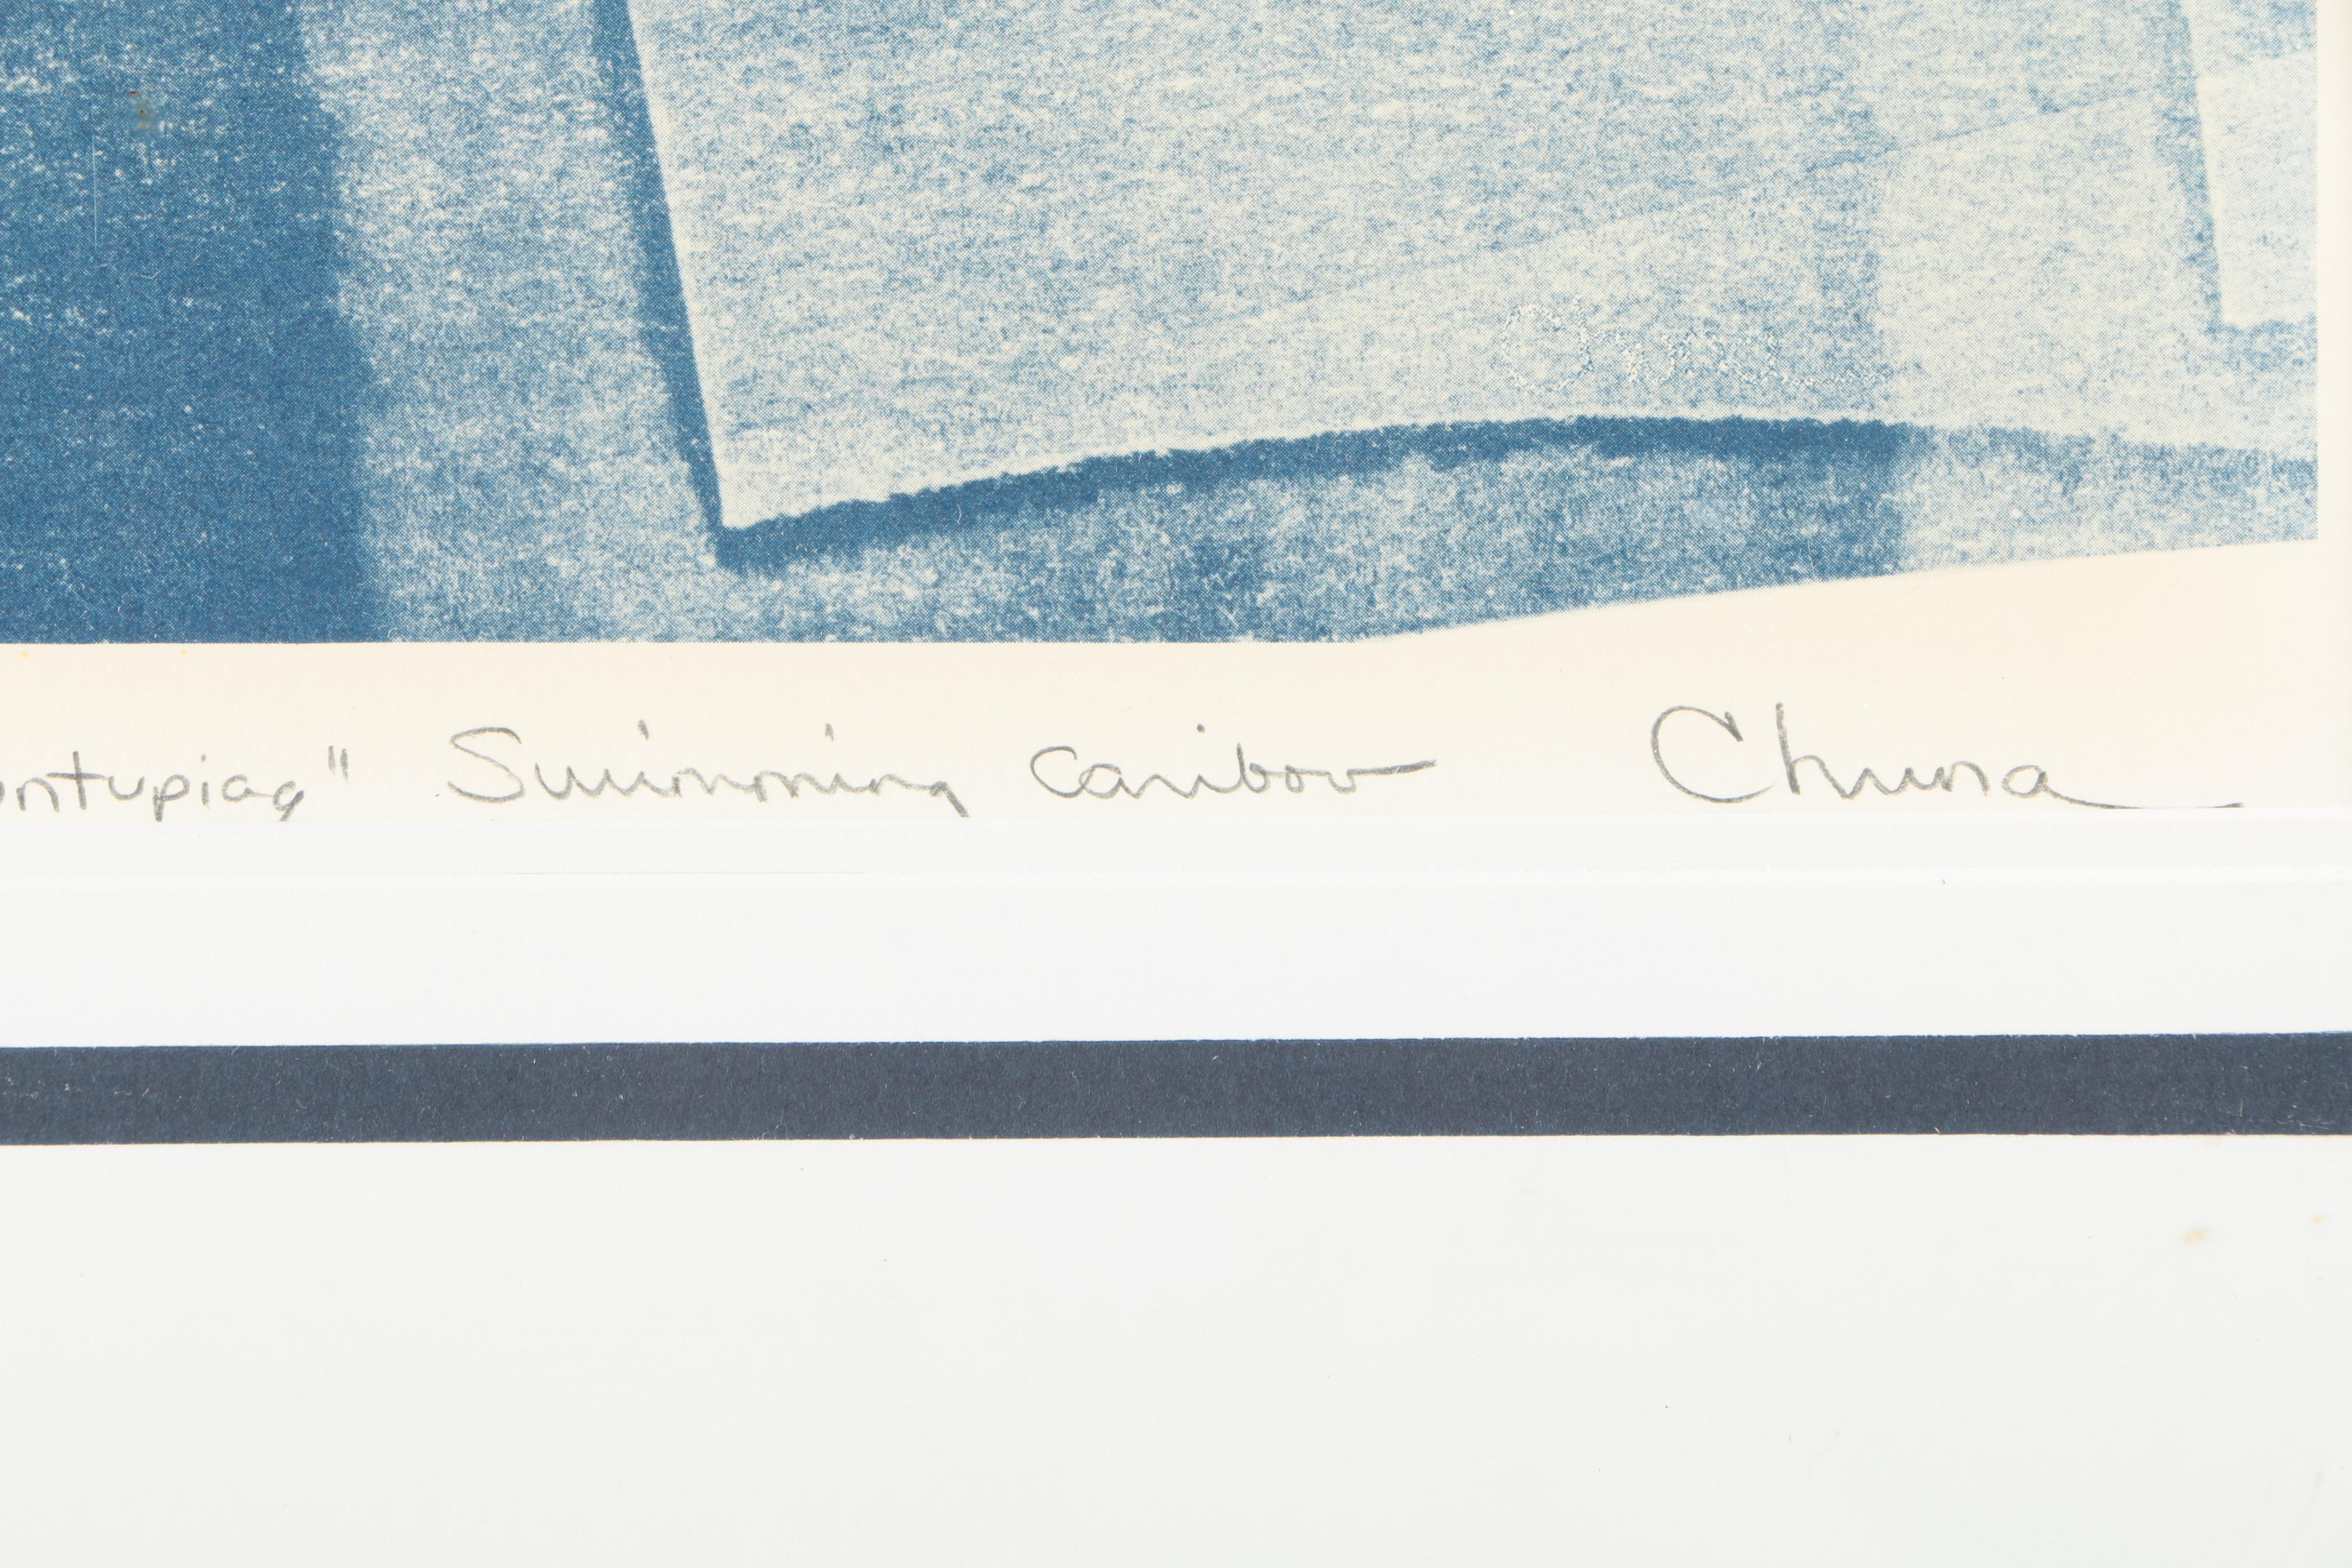 ontupiaq" Swimming Caribou Chuna